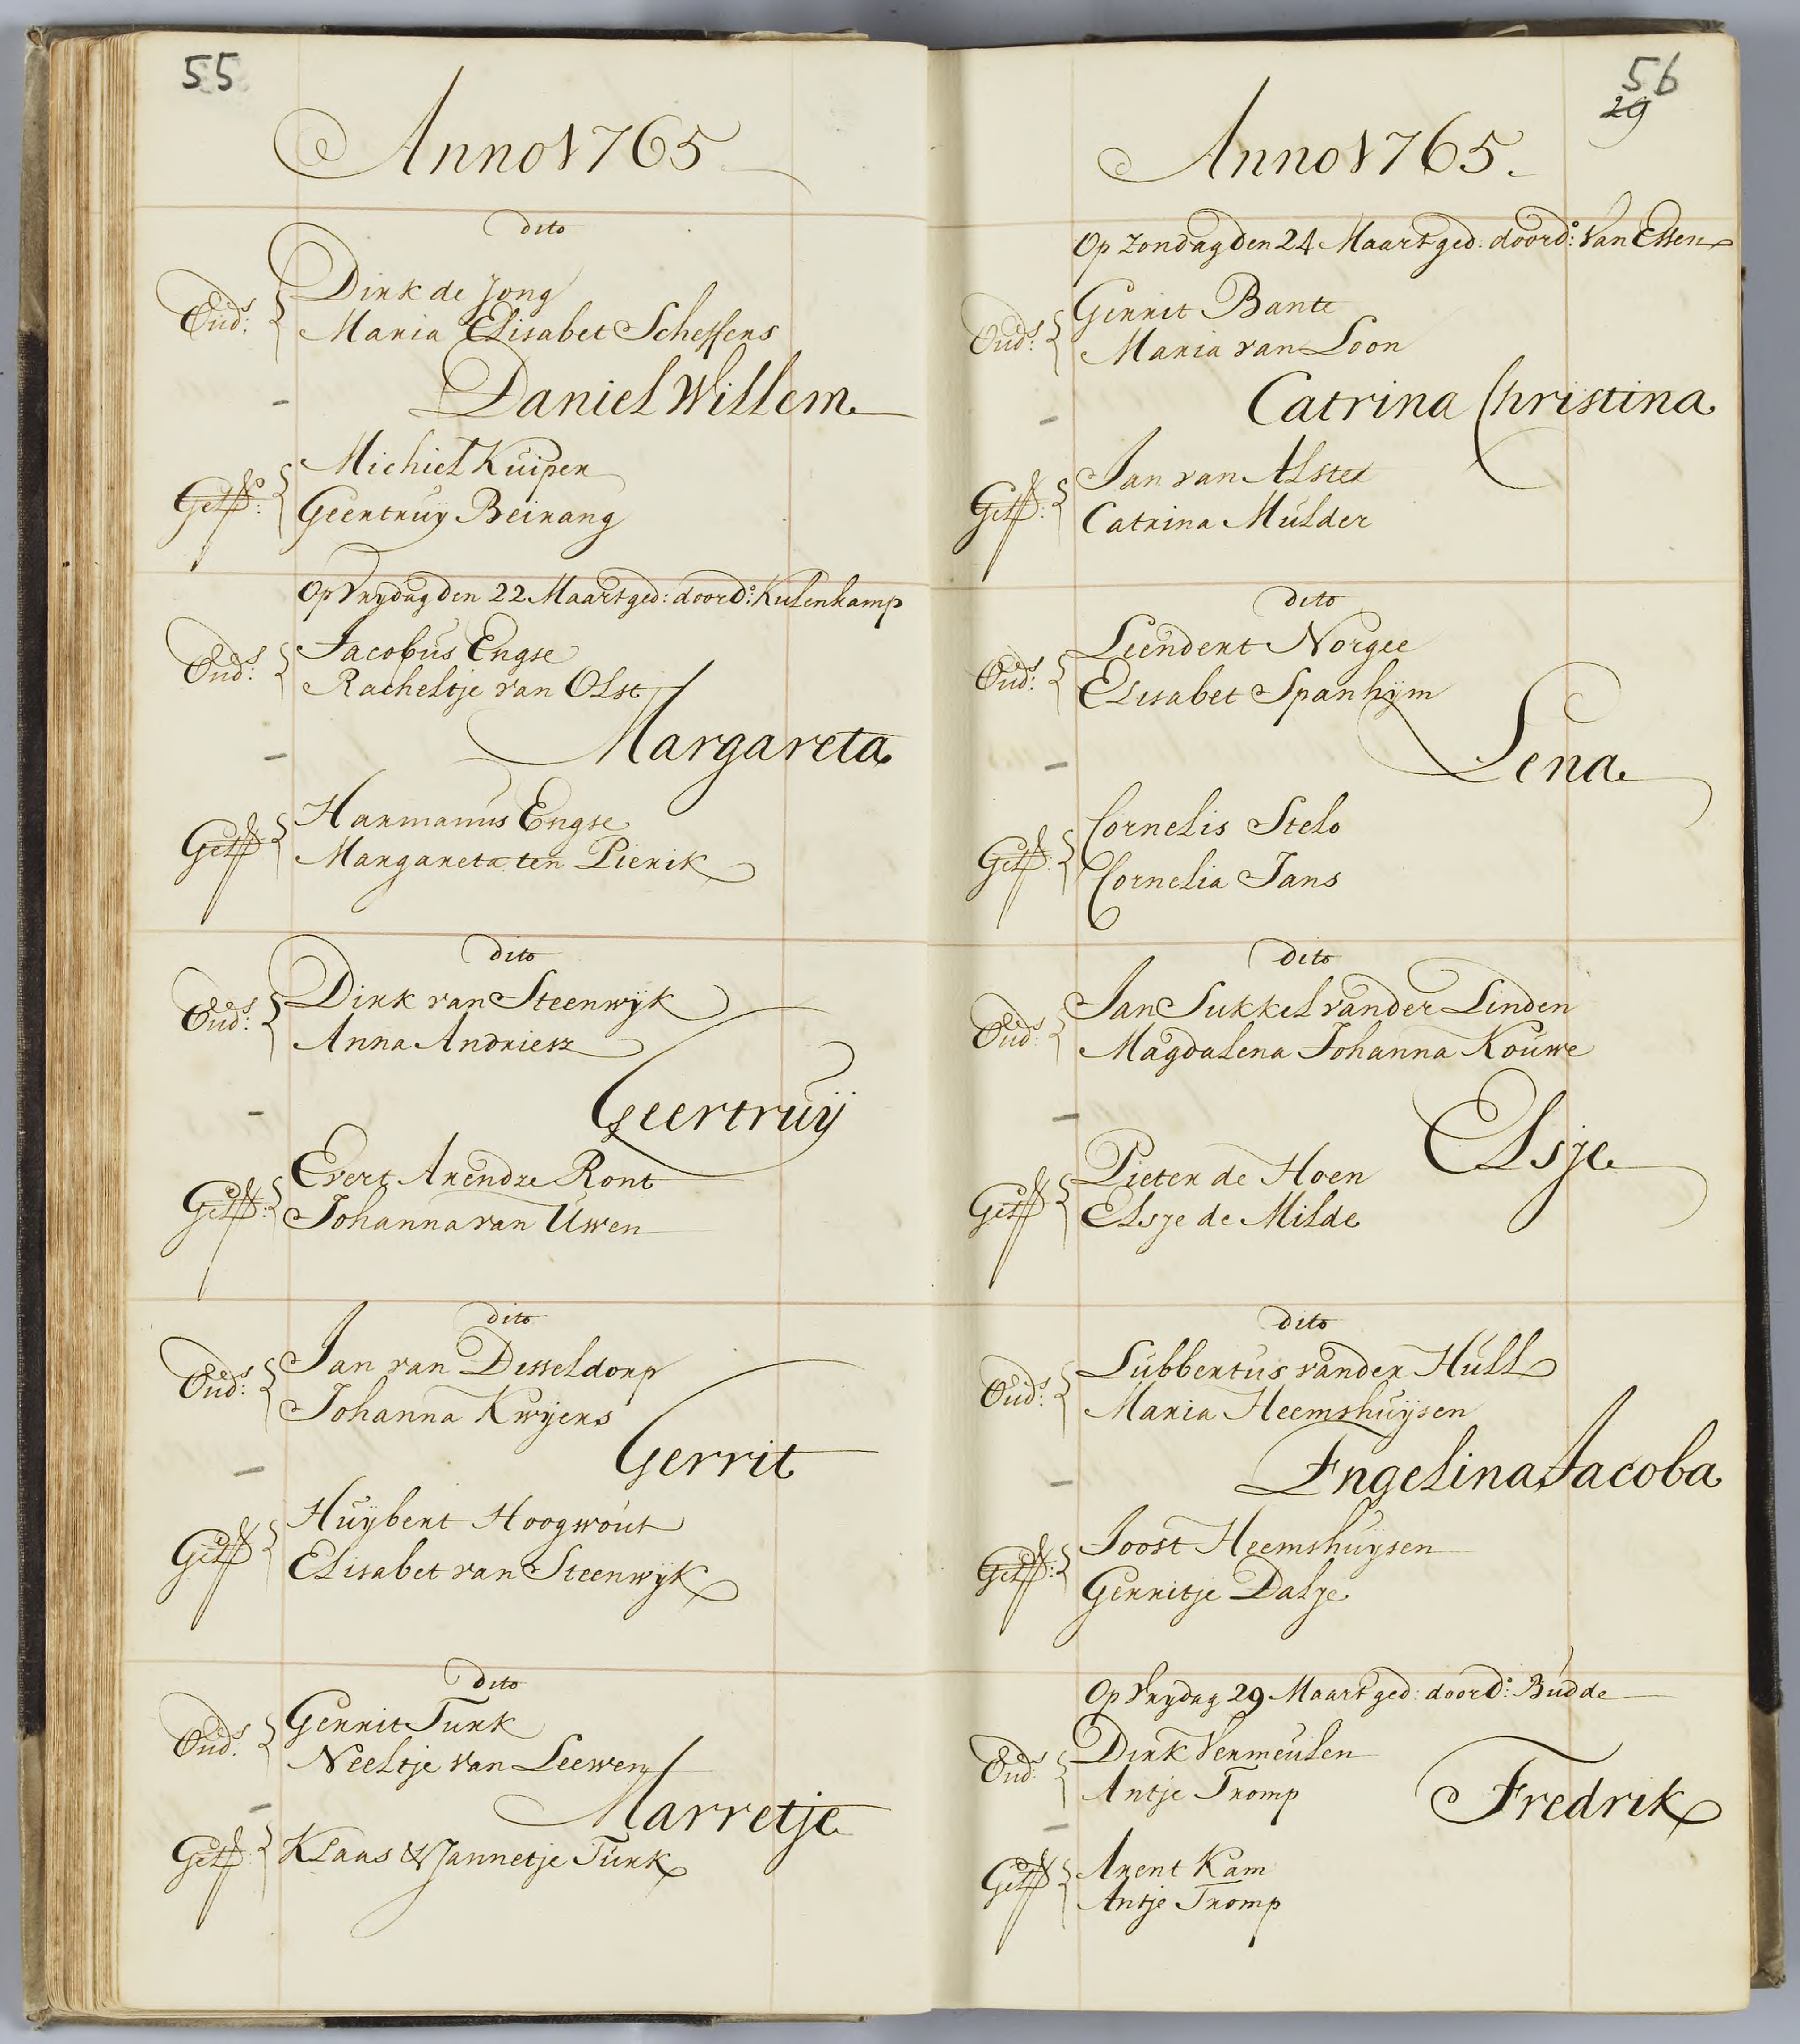 55
Anno 1765
dito
Oud.s: Dirk de Jong
Maria Elisabet Scheffers
Daniel Willem
Get: Michiel Kuiper
Geertruy Beirang
Op Vrydag den 22 Maart ged: door D.o: Kulenkamp
Oud.s: Jacobus Engse
Racheltje van Olst
Margareta
Get: Harmanus Engse
Margareta ten Pierik
dito
Oud.s: Dirk van Steenwyk
Anna Andriesz
Geertruij
Get: Evert Arendze Ront
Johanna van Uwen
dito
Oud.s: Jan van Disseldorp
Johanna Kwyers
Gerrit
Get: Huybert Hoogwout
Elisabet van Steenwyk
dito
Oud.s: Gerrit Turk
Neeltje van Leewen
Marretje
Get: Klaas & Jannetje Turk
56
29
Anno 1765.
Op Zondag den 24 Maart ged: door d.o: Van Essen
Oud.s: Gerrit Bante
Maria van Loon
Catrina Christina
Get: Jan van Alster
Catrina Mulder
dito
Oud.s: Leendert Norgee
Elisabet Spanhym
Lena
Get: Cornelis Stelo
Cornelia Jans
dito
Oud.s: Jan Sukkel vander Linden
Magdalena Johanna Kouwe
Elsje
Get: Pieter de Hoen
Elsje de Milde
dito
Oud.s: Lubbertus vander Hull
Maria Heemshuysen
Engelina Jacoba
Get: Joost Heemshuysen
Gerritje Dalje
Op Vrydag 29 Maart ged: door D.o: Budde
Oud.s: Dirk Vermeulen
Antje Tromp
Fredrik
Get: Arent Kam
Antje Tromp